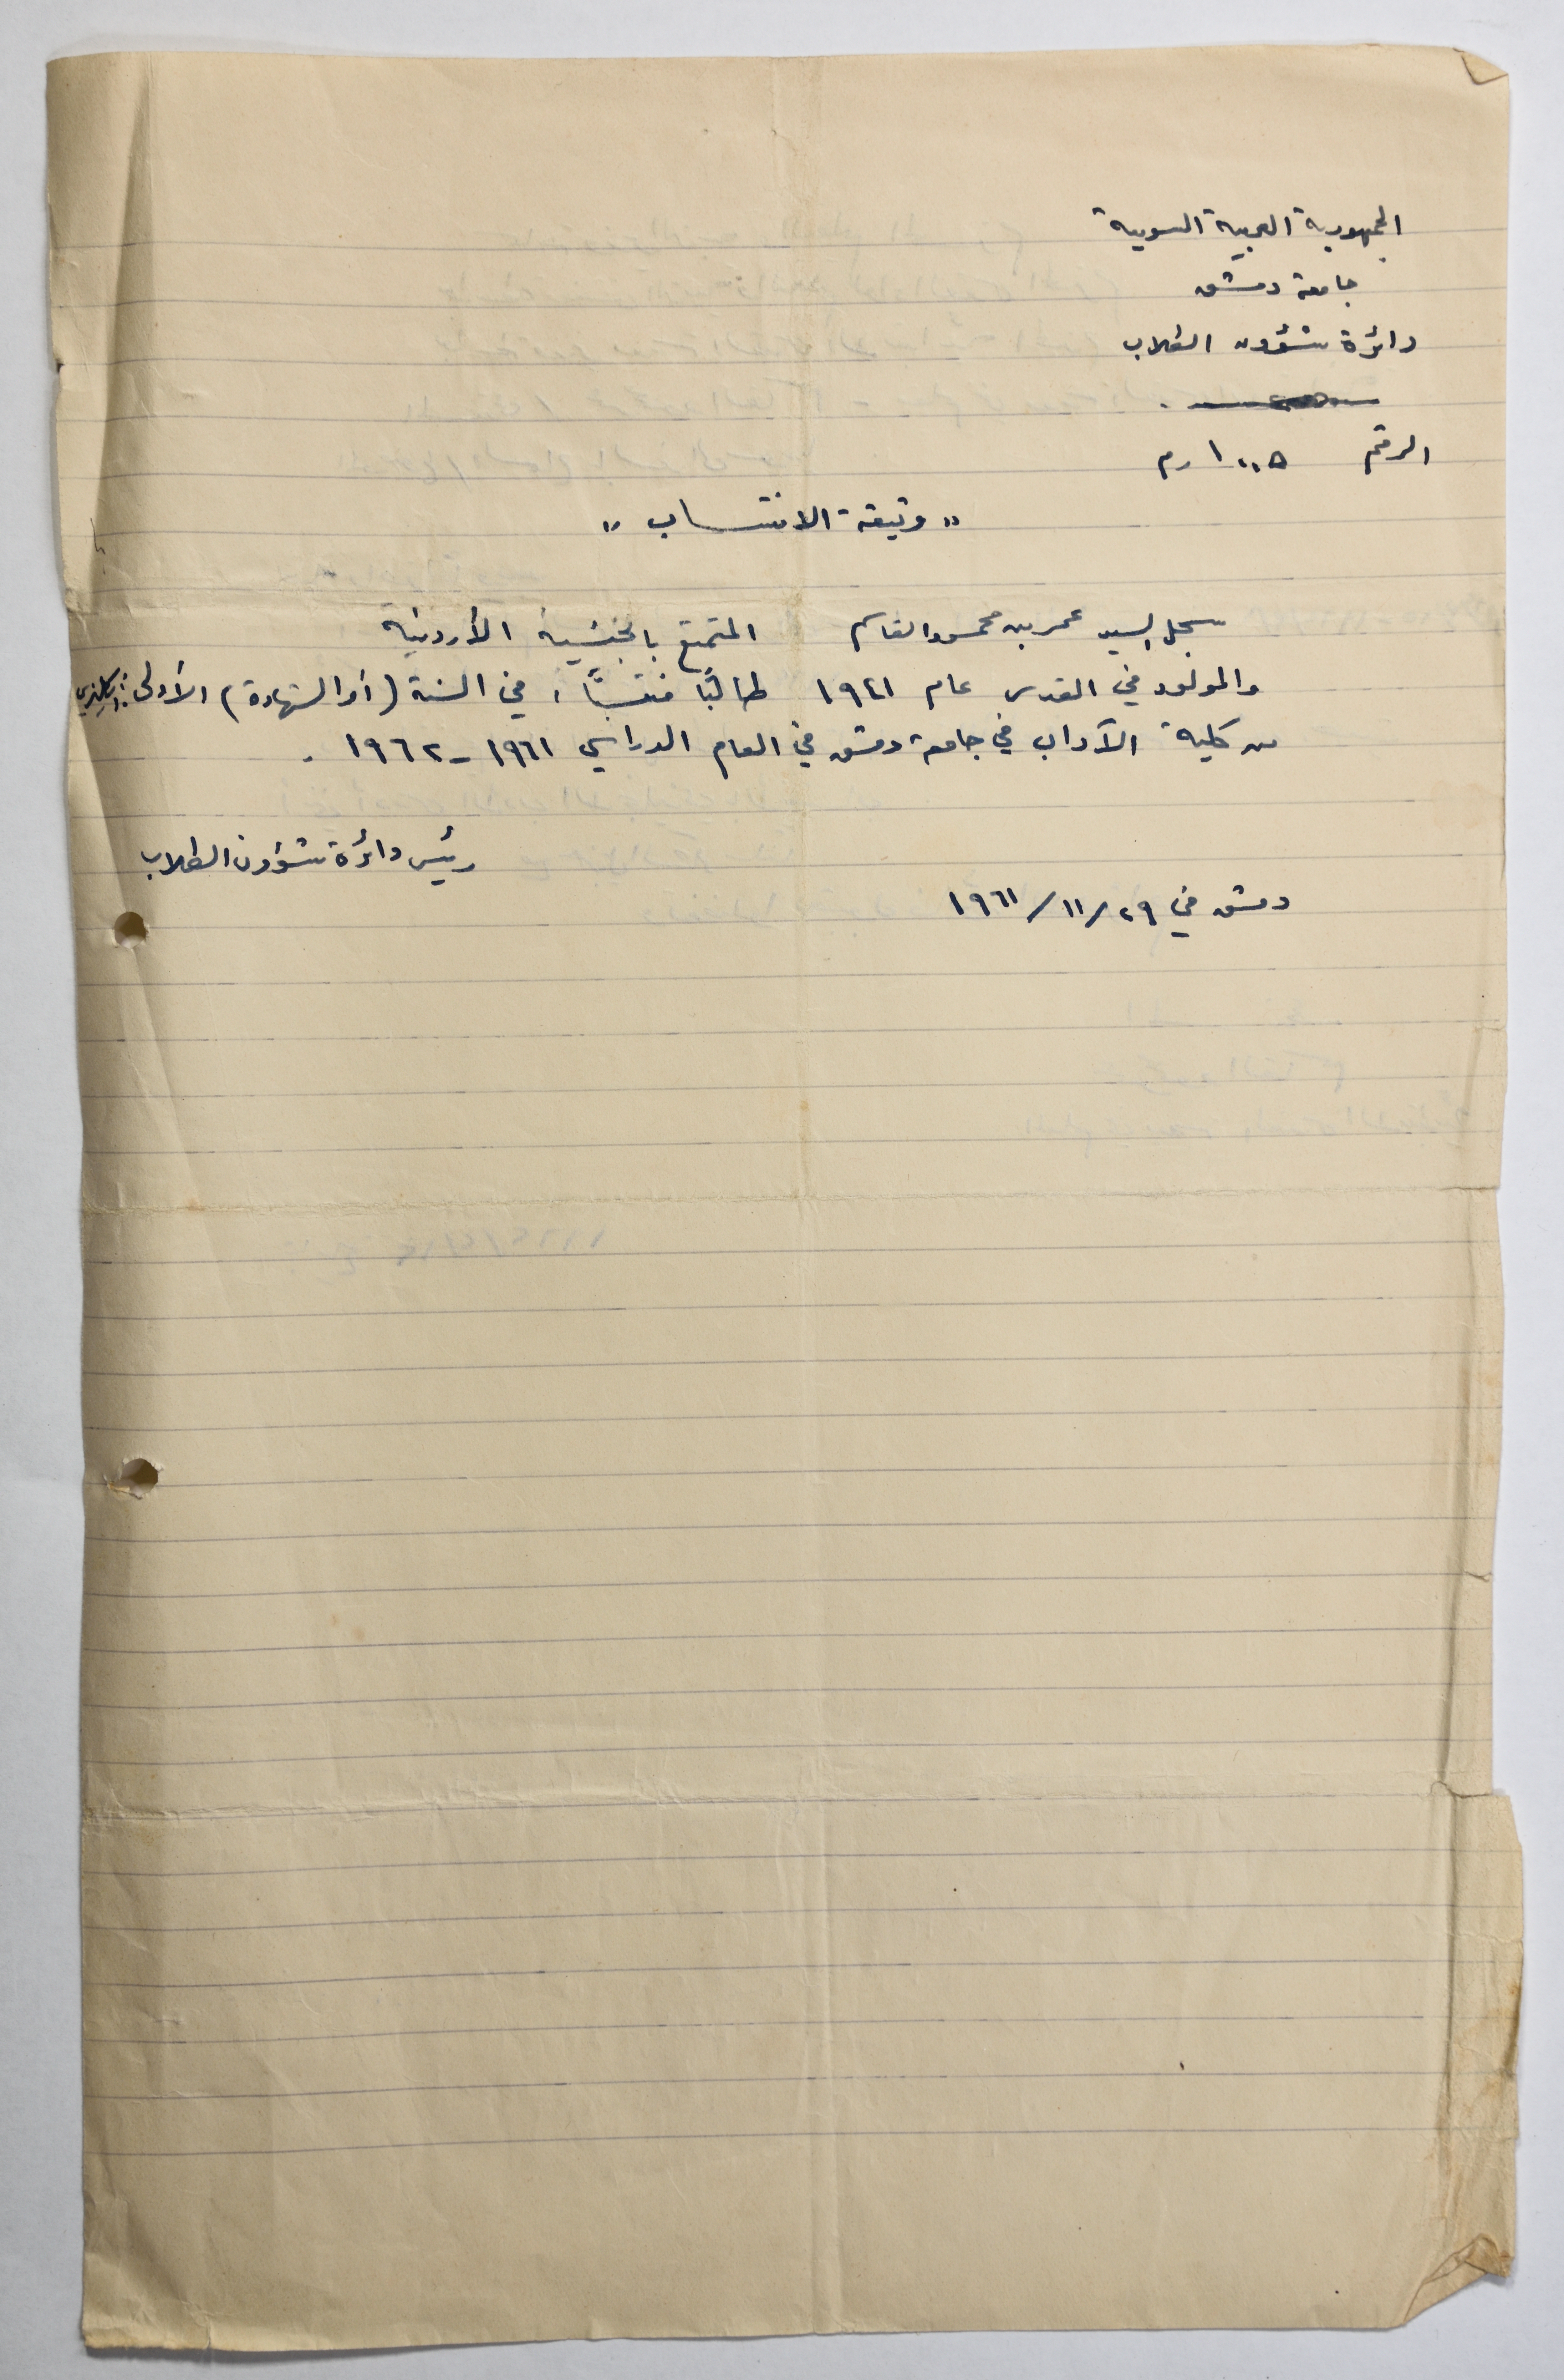 الجمهورية العربية السورية
جامعة دمشق
دائرة شؤون الطلاب
الرقم ١٠٠٥ / م
« وثيقة الانتساب »
سجل السيد عمر بن محمود القاسم المتمتع بالجنسية الأردنية
والمولود في القدس عام ١٩٤١ طالبًا منتسبًا، في السنة (أو الشهادة) الأولى: إنكليزي
من كلية الآداب في جامعة دمشق في العام الدراسي ١٩٦١ - ١٩٦٢ .
رئيس دائرة شؤون الطلاب
دمشق في ٢٩ / ١١ / ١٩٦١